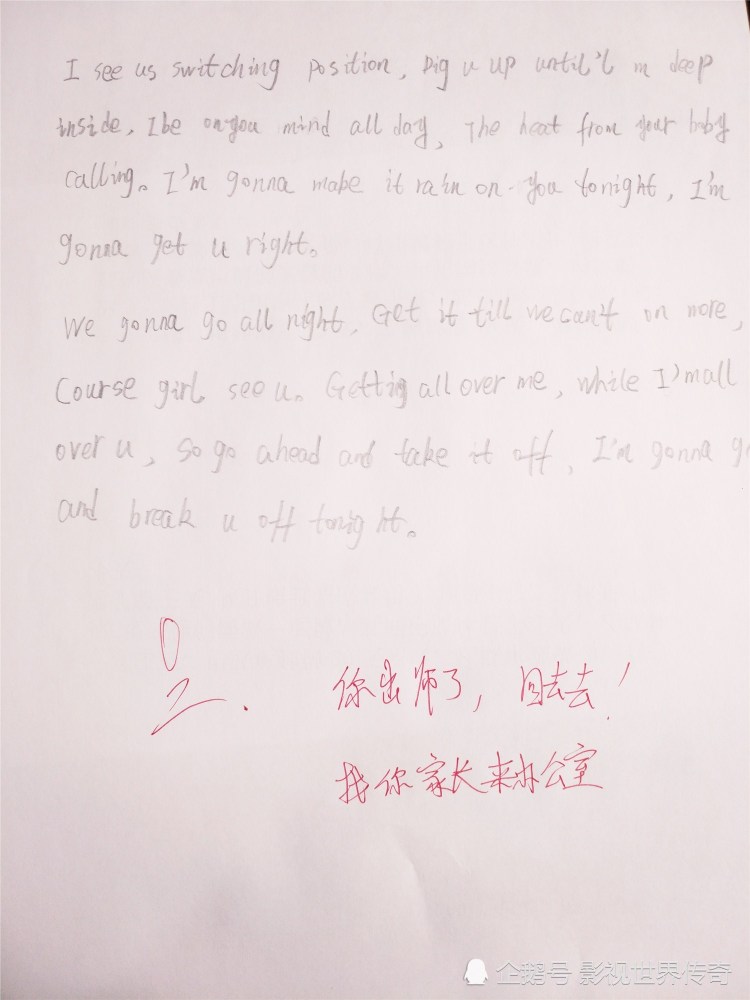 I see us switching position, Dig u up until'l m deep
inside, I be on you mind all day, The heat from your baby
calling。I'm gonna make it rain on you tonight, I'm
gonna get u right。
We gonna go all night, Get it till we can't on more,
Course girl see u。Getting all over me, while I'm all
over u, so go ahead and take it off, I'm gonna g
and break u off tonight。
0
你出师了, 回去去!
找你家长来办公室
企鹅号 影视世界传奇